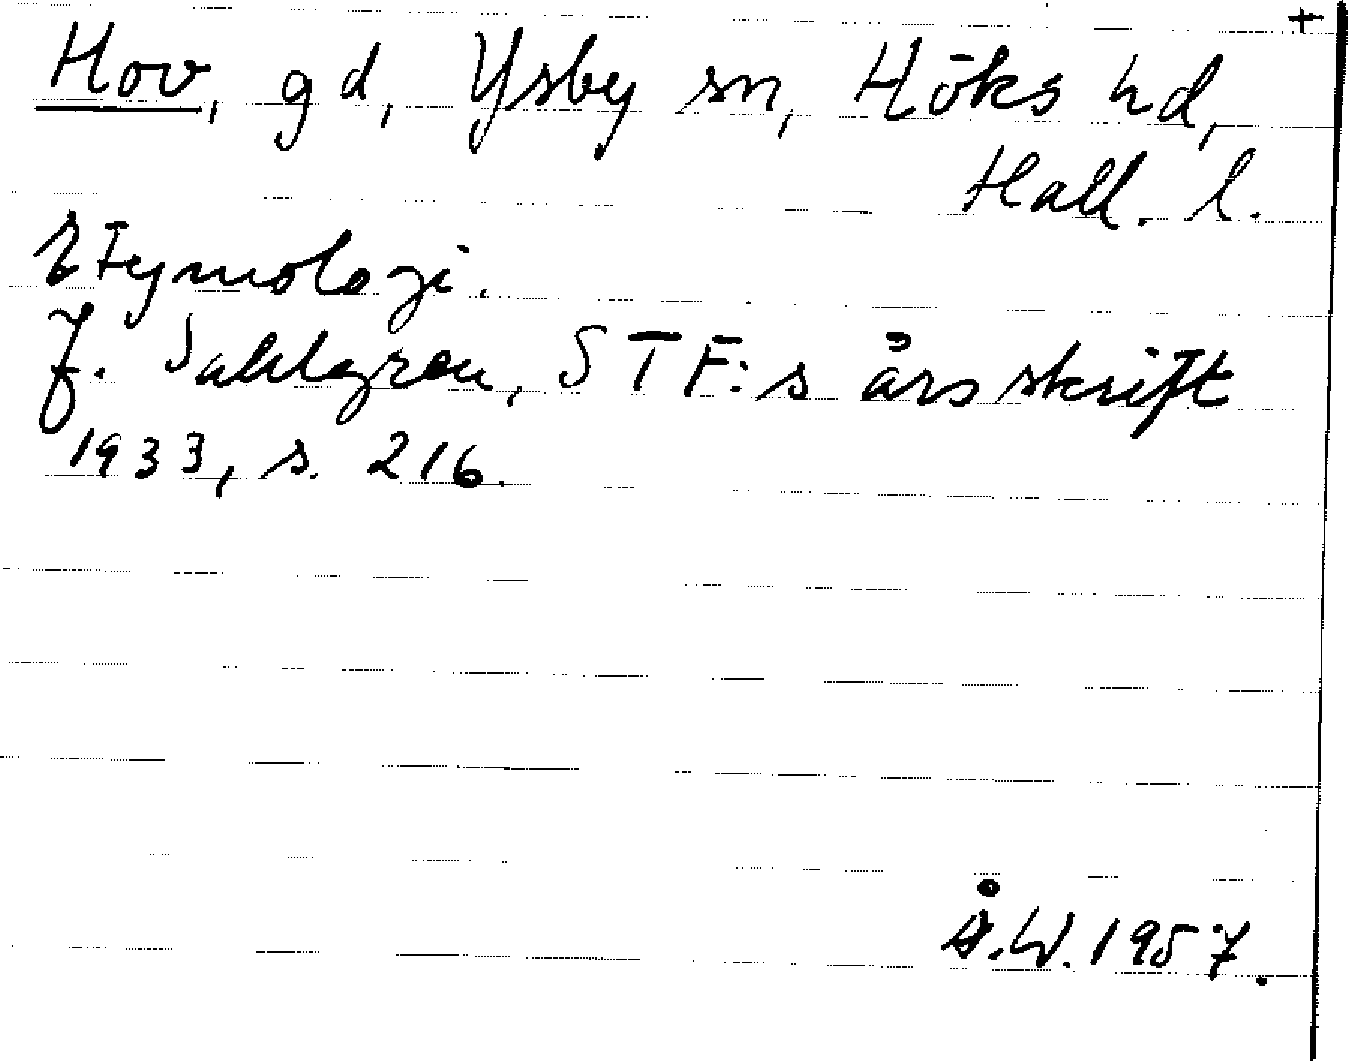 +
Hov, gd, Ysby sn, Höks hd,
Hall. l.
Etymologi.
J. Sahlgren, STF:s årsskrift
1933, s. 216.
Å.W. 1957.